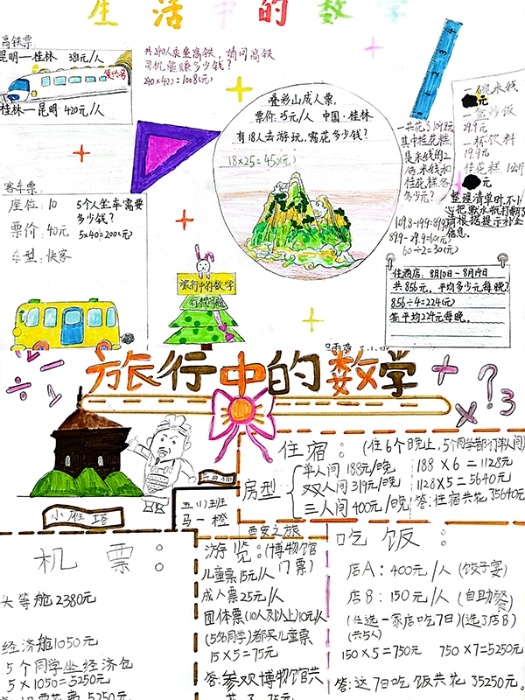 生活中的数学
高铁票:
昆明—桂林 381元/人
复兴号
桂林—昆明 420元/人
叠彩山成人票,
票价:25元/人 中国·桂林
有18人去游玩,需花多少钱?
18×25=450(元)
一碗米线
元
一盒炒饭
29.9元
一杯饮料
19.9元
桂花糕
元
整理清单时,不小
心把墨水瓶打翻了
请根据提示补全
信息。
客车票:
座位:10
票价:40元
车型:快客
5个人坐车需要
多少钱?
5×40=200(元)
旅行中的数学
住酒店:8月10日-8月14日
共856元,平均多少元每晚?
856÷4=214(元)
答:平均214元每晚。
旅行中的数学
小雁塔
五(1)班
马一橙
住宿:(住6个晚上,5个同学都住单人间)
房型
单人间 188元/晚
双人间 319元/晚
三人间 400元/晚
188×6=1128元
1128×5=5640元
答:住宿共花5640元
机票:
头等舱2380元
经济舱1050元
5个同学坐经济舱
5×1050=5250元
西安之旅
游览:(博物馆
门票)
儿童票15元/人
成人票25元/人
团体票(10人及以上)10元/人
(5名同学)都买儿童票
15×5=75元
答:参观博物馆共
花了75元
吃饭:
店A:400元/人(饺子宴)
店B:150元/人(自助餐)
(任选一家店吃7日)(选了店B)
(共5人)
150×5=750元 750×7=5250元
答:这7日吃饭共花35250元